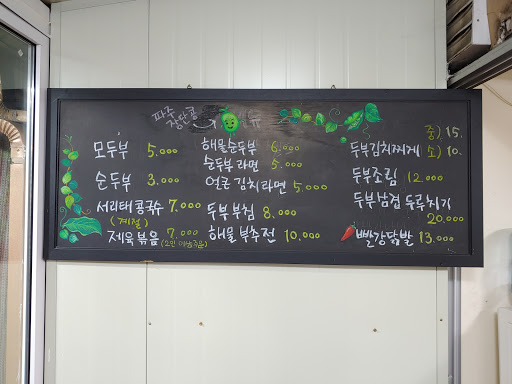 파주
장단콩
모두부 5.000
순두부 3.000
서리태콩국수 7.000
(계절)
제육볶음 7.000 (2인 이상주문)
해물순두부 6.000
순두부라면 5.000
얼큰 김치라면 5.000
두부부침 8.000
해물부추전 10.000
중) 15.
두부김치찌개 소) 10.
두부조림 12.000
두부삼겹 두루치기
20.000
빨강닭발 13.000